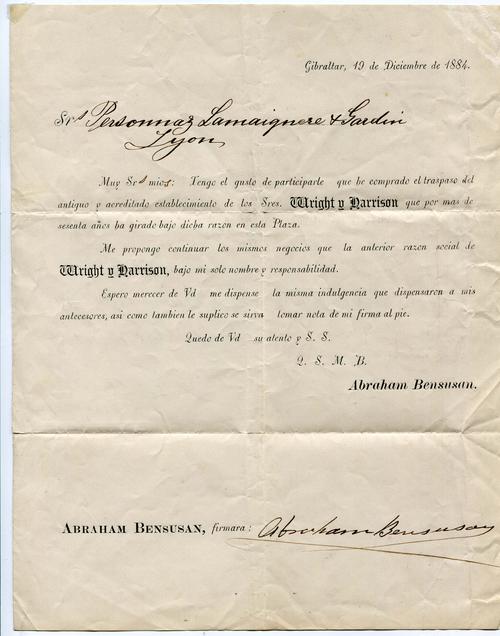 Gibraltar, 19 de Diciembre de 1884.
Srs Personnaz Lamaignere & Gardin
Lyon
Muy Srs mios: Tengo el gusto de participarle que he comprado el traspaso del
antiguo y acreditado establecimiento de los Sres. Wright y Harrison que por mas de
sesenta años ha girado bajo dicha razon en esta Plaza.
Me propongo continuar los mismos negocios que la anterior razon social de
Wright y Harrison, bajo mi solo nombre y responsabilidad.
Espero merecer de Vd me dispense la misma indulgencia que dispensaron a mis
antecesores, asi como tambien le suplico se sirva tomar nota de mi firma al pie.
Quedo de Vd su atento y S. S.
Q. S. M. B.
Abraham Bensusan.
ABRAHAM BENSUSAN, firmara: Abraham Bensusan